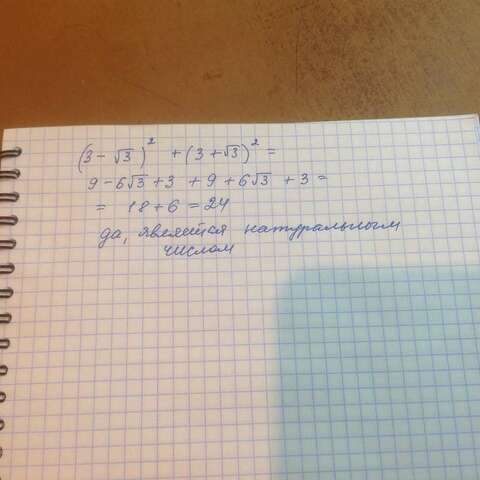 (3 - √3)² + (3 + √3)² =
9 - 6√3 + 3 + 9 + 6√3 + 3 =
= 18 + 6 = 24
да, является натуральным
числом